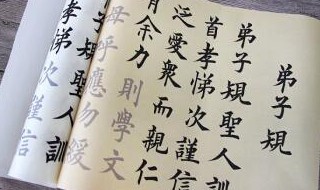 弟子規
弟子規聖人訓
首孝悌次謹信
泛愛眾而親仁
有余力則學文
母呼應勿緩
規聖人訓
孝悌次謹信